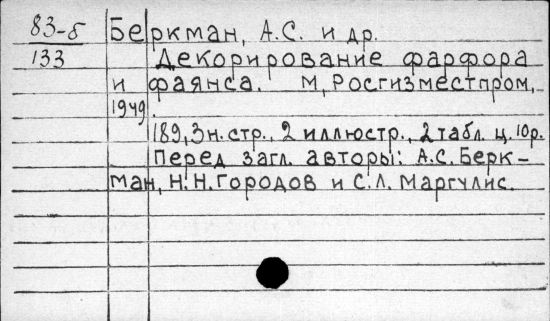 83-б
133
Беркман, А.С. и др.
Декорирование фарфора
и фаянса. М, Росгизместпром,
1949.
189, 3 н. стр., 2 иллюстр., 2 табл. ц. 10р.
Перед загл. авторы: А.С. Берк-
ман, Н.Н. Городов и С.Л. Маргулис.